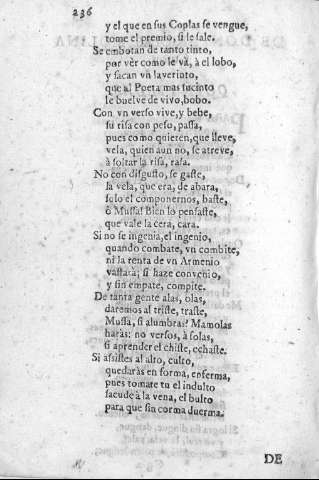 236
y el que en sus Coplas se vengue,
tome el premio, si le sale.
Se embotan de tanto tinto,
por ver como le và, à el lobo,
y sacan vn laverinto,
que al Poeta mas sucinto
le buelve de vivo, bobo.
Con vn verso vive, y bebe,
su risa con peso, passa,
pues como quieren, que lleve,
vela, quien aun no, se atreve,
à soltar la risa, rasa.
No con disgusto, se gaste,
la vela, que era, de abara,
solo el componernos, baste,
ò Mussa! Bien lo pensaste,
que vale la cera, cara.
Si no se ingenia, el ingenio,
quando combate, vn combite,
ni la renta de vn Armenio
vastarà; si haze convenio,
y sin empate, compite.
De tanta gente alas, olas,
daremos al triste, traste,
Mussa, si alumbras? Mamolas
haràs: no versos, à solas,
si aprender el chiste, echaste.
Si assistes al alto, culto,
quedaràs en forma, enferma,
pues tomate tu el indulto
sacude à la vena, el bulto
para que sin corma duerma.
DE